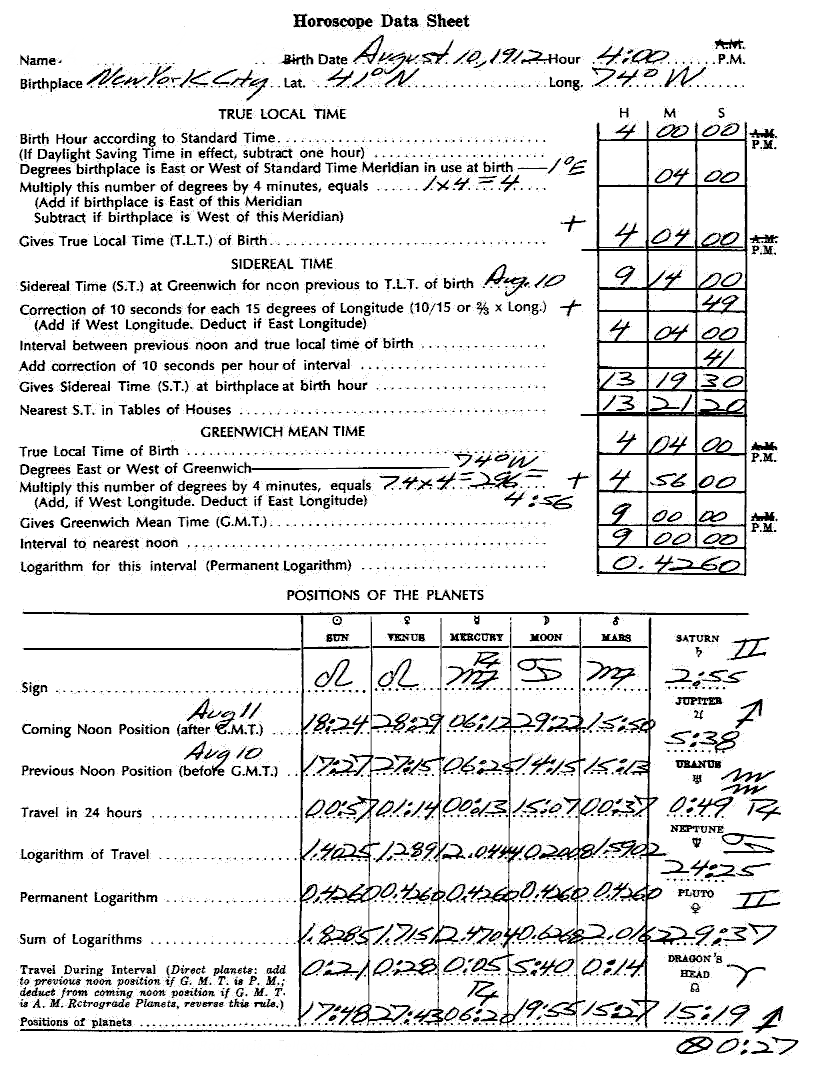 Horoscope Data Sheet
A.M.
Name Birth Date August 10, 1912 Hour 4:00 P.M.
Birthplace New York City Lat. 41° N Long. 74° W
TRUE LOCAL TIME H M S
Birth Hour according to Standard Time 4 00 00 A.M. P.M.
(If Daylight Saving Time in effect, subtract one hour)
Degrees birthplace is East or West of Standard Time Meridian in use at birth 1° E
Multiply this number of degrees by 4 minutes, equals 1 x 4 = 4 04 00
(Add if birthplace is East of this Meridian
Subtract if birthplace is West of this Meridian) +
Gives True Local Time (T.L.T.) of Birth 4 04 00 A.M. P.M.
SIDEREAL TIME
Sidereal Time (S.T.) at Greenwich for noon previous to T.L.T. of birth Aug. 10 9 14 00
Correction of 10 seconds for each 15 degrees of Longitude (10/15 or ⅔ x Long.) + 49
(Add if West Longitude. Deduct if East Longitude)
Interval between previous noon and true local time of birth 4 04 00
Add correction of 10 seconds per hour of interval 41
Gives Sidereal Time (S.T.) at birthplace at birth hour 13 19 30
Nearest S.T. in Tables of Houses 13 21 20
GREENWICH MEAN TIME
True Local Time of Birth 4 04 00 A.M. P.M.
Degrees East or West of Greenwich 74° W
Multiply this number of degrees by 4 minutes, equals 74 x 4 = 296 = + 4 56 00
(Add, if West Longitude. Deduct if East Longitude) 4:56
Gives Greenwich Mean Time (G.M.T.) 9 00 00 A.M. P.M.
Interval to nearest noon 9 00 00
Logarithm for this interval (Permanent Logarithm) 0.4260
POSITIONS OF THE PLANETS
☉ ♀ ☿ ☽ ♂
SUN VENUS MERCURY MOON MARS SATURN ♄ ♊
Sign ♌ ♌ ℞ ♍ ♋ ♍ 2:55
Aug 11 JUPITER ♃ ♐
Coming Noon Position (after G.M.T.) 18:24 28:29 06:12 29:22 15:50 5:38
Aug 10 URANUS ♅ ♒
Previous Noon Position (before G.M.T.) 17:27 27:15 06:25 14:15 15:13
Travel in 24 hours 00:57 01:14 00:13 15:07 00:37 0:49 ℞
NEPTUNE ♆ ♋
Logarithm of Travel 1.4025 1.2891 2.0444 0.2008 1.5902 24:25
Permanent Logarithm 0.4260 0.4260 0.4260 0.4260 0.4260 PLUTO ♊
Sum of Logarithms 1.8285 1.7151 2.4704 0.6268 2.0162 29:37
Travel During Interval (Direct planets: add 0:21 0:28 0:05 5:40 0:14 DRAGON'S
to previous noon position if G. M. T. is P. M.; HEAD ♈
deduct from coming noon position if G. M. T. ℞ ☊
is A. M. Retrograde Planets, reverse this rule.)
Positions of planets 17:48 27:43 06:20 19:55 15:27 15:19 ♐
⊗ 0:27